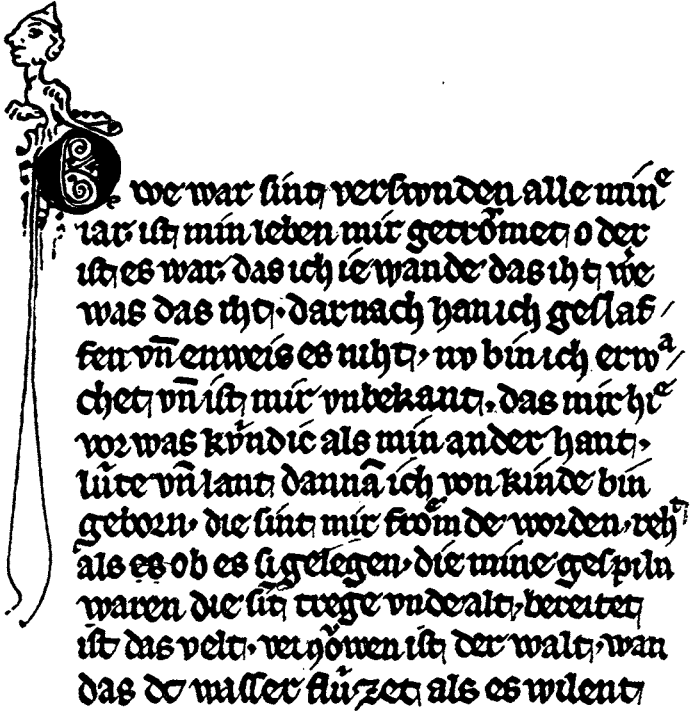 O we war sint verswnden alle minͤ
iar· ist min leben mir getroͤmet oder
ist es war· das ich ie wande das iht wͤe
was das iht· dar nach han ich geslaf/
fen vn̄ enweis es niht· nv bin ich erwͣ/
chet vn̄ ist mir vnbekant· das mir hiͤ
vor was kv̍ndic als min ander hant·
lu̍te vn̄ lant dannā ich von kinde bin
geborn· die sint mir froͤmde worden· rehͭ
als es ob es si gelegen· die mine gespiln
waren die sīt trege vnde alt· bereitet
ist das velt· verhoͤwen ist der walt· wan
das dc wasser flu̍zet als es wilent